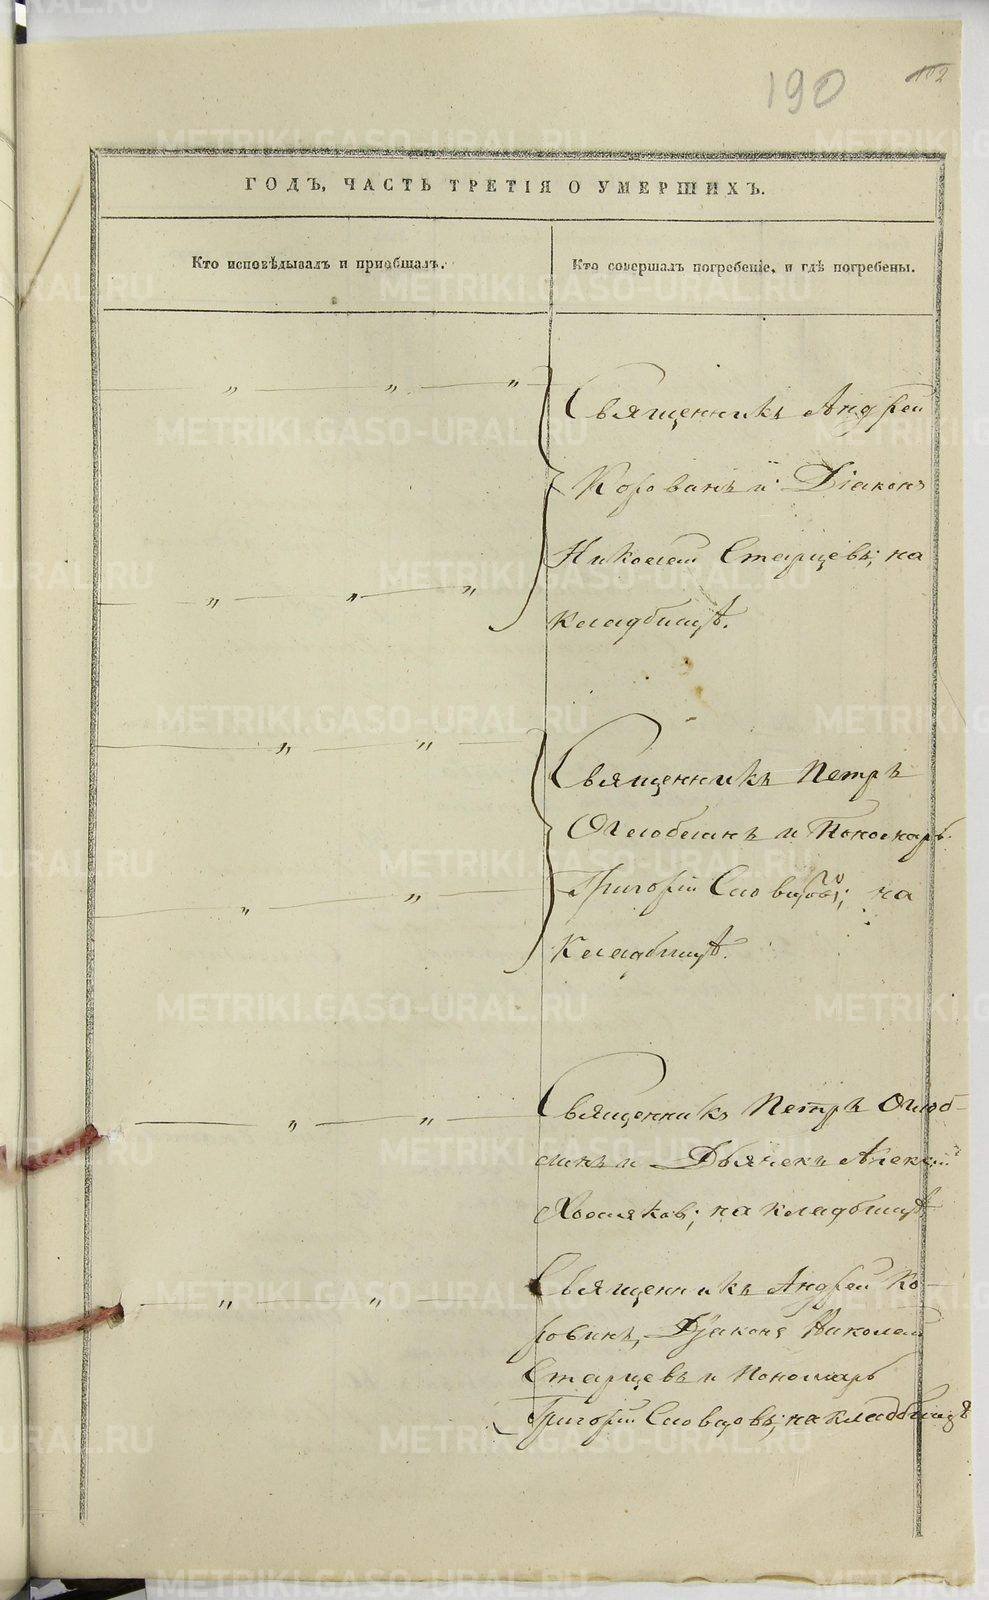 190
102
ГОДЪ, ЧАСТЬ ТРЕТІЯ О УМЕРШИХЪ.
Кто исповѣдывалъ и пріобщалъ.
Кто совершалъ погребеніе, и гдѣ погребены.
" " "
Священникъ Андрей
Корованъ и Діаконъ
Николай Старцевъ; на
" " "
кладбищѣ.
" "
Священникъ Петръ
Оглоблинъ и Пономарь
" "
Григорій Словцовъ; на
Кладбищѣ.
" "
Священникъ Петръ Оглоб-
линъ и Дьячекъ Алексѣй
Хвосляков; на кладбищѣ
" "
Священникъ Андрей Ко-
ровинъ, Діаконъ Николай
Старцевъ и Пономарь
Григорій Словцовъ; на кладбищѣ
METRIKI.GASO-URAL.RU